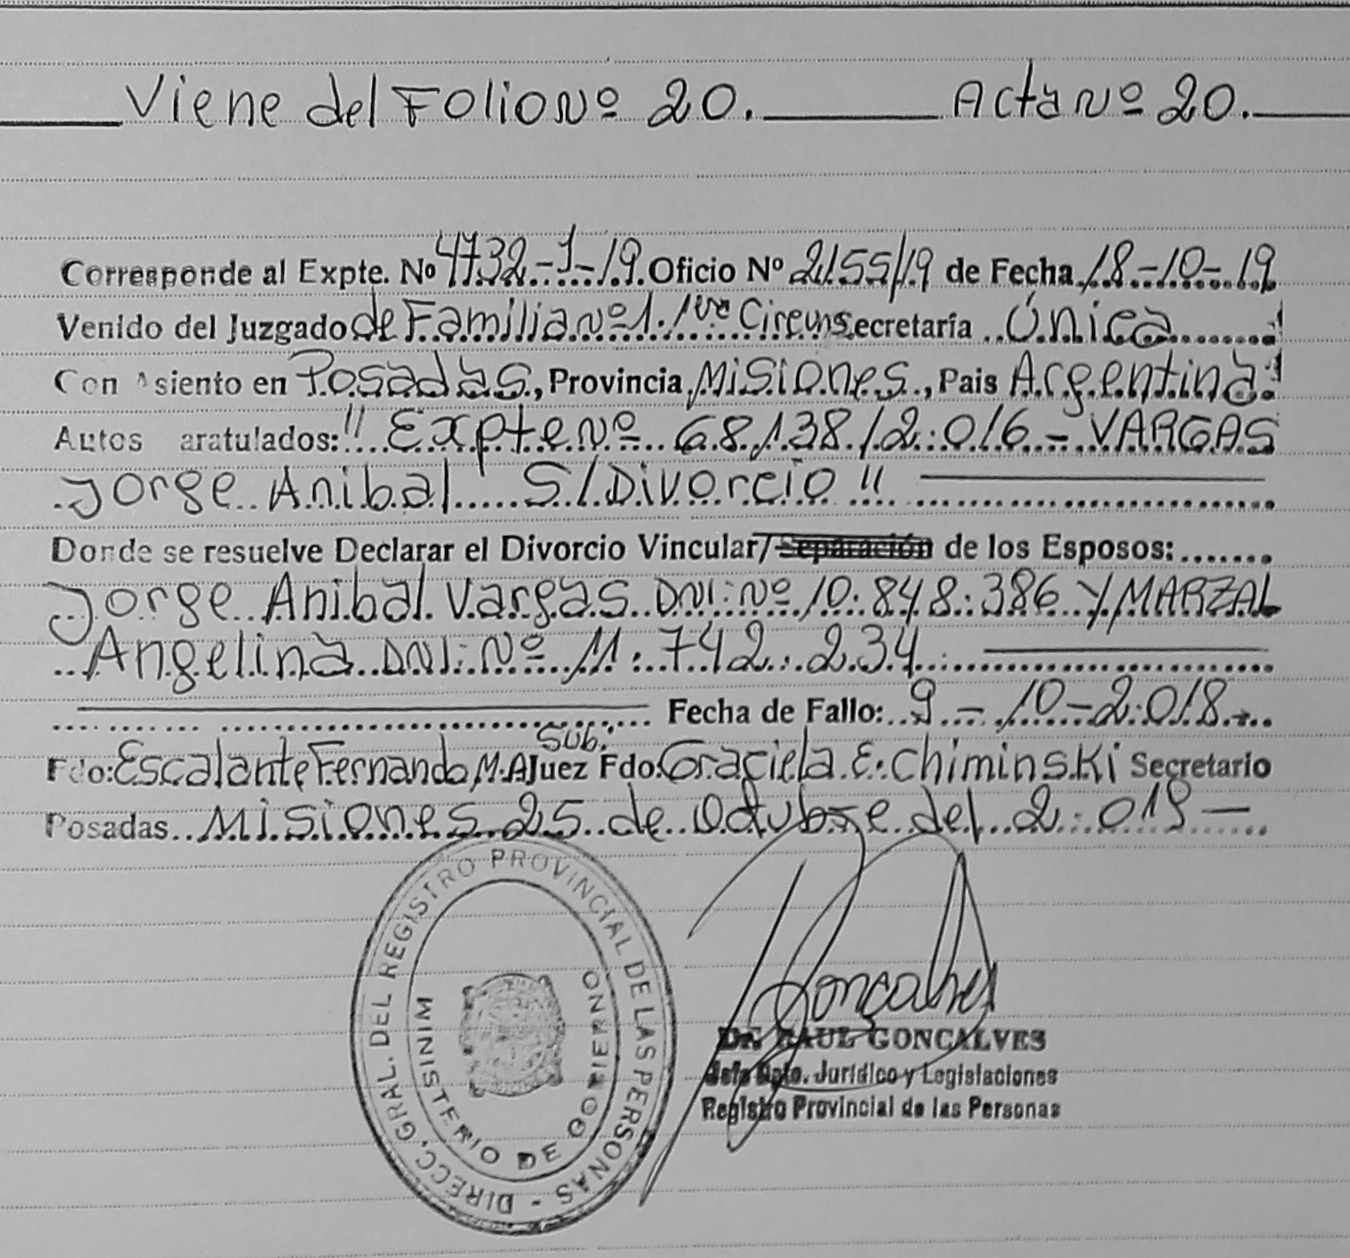 Viene del Folio Nº 20. Acta Nº 20.
Corresponde al Expte. Nº 4732-1-19. Oficio Nº 2155/19 de Fecha 18-10-19
Venido del Juzgado de Familia Nº 1. 1ra Circuns. Secretaría Única
Con Asiento en Posadas, Provincia Misiones, Pais Argentina
Autos aratulados: "Expte Nº 68138/2.016 - VARGAS
Jorge Anibal S/Divorcio"
Donde se resuelve Declarar el Divorcio Vincular/Separación de los Esposos:
Jorge Anibal Vargas DNI: Nº 10.848.386 Y MARZAL
Angelina DNI: Nº 11.742.234.
Fecha de Fallo: 9-10-2.018
Sub.
Fdo: Escalante Fernando M.A Juez Fdo. Graciela E. Chiminski Secretario
Posadas Misiones 25 de Octubre del 2.019-
DIRECC. GRAL. DEL REGISTRO PROVINCIAL DE LAS PERSONAS -
MINISTERIO DE GOBIERNO
Dr. RAUL GONCALVES
Jefe Dpto. Jurídico y Legislaciones
Registro Provincial de las Personas